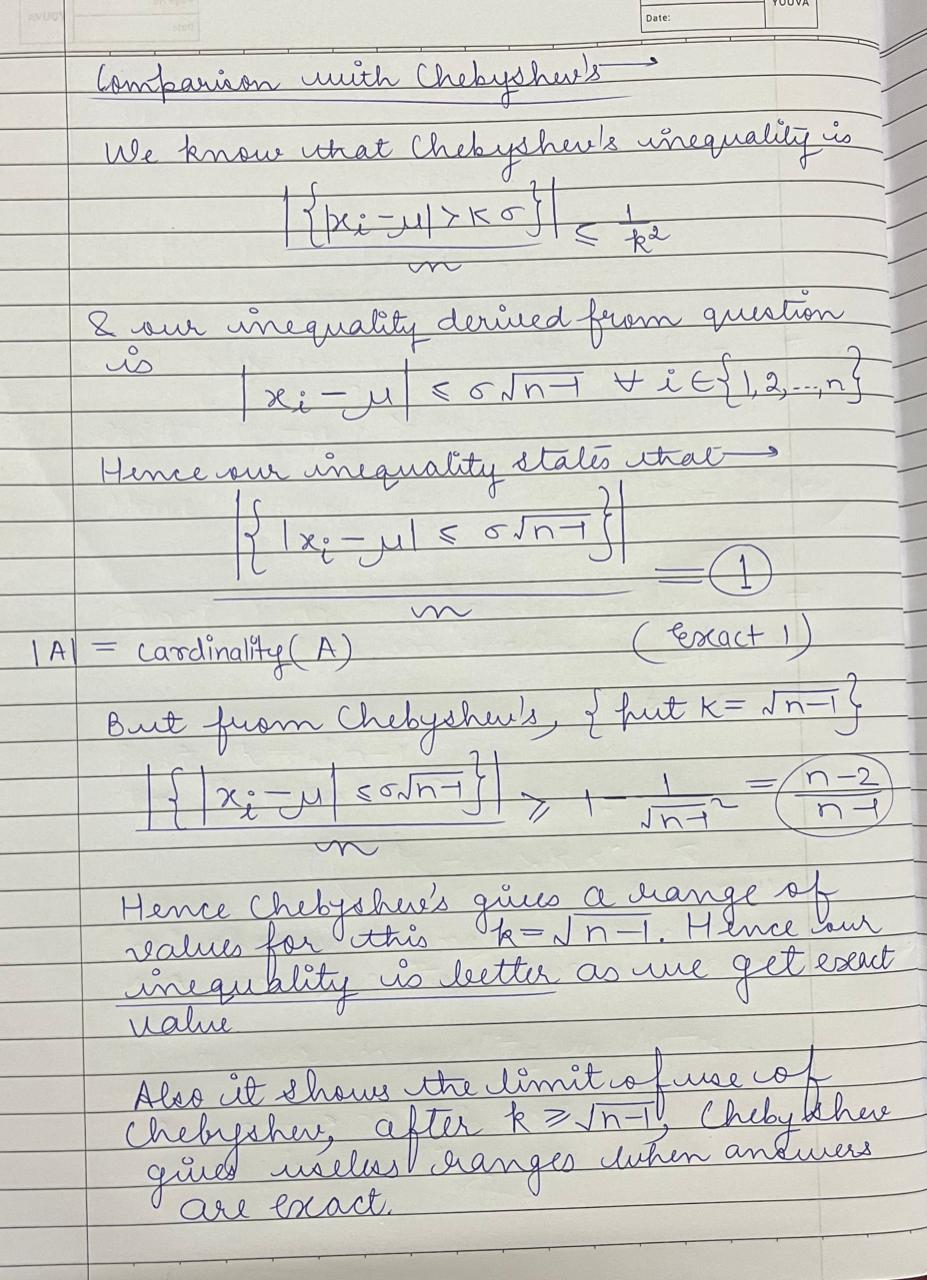 YOUVA
Date:
Comparison with Chebyshev's →
We know that Chebyshev's inequality is
|{|xᵢ - μ| > kσ}| / n ≤ 1/k²
& our inequality derived from question
is
|xᵢ - μ| ≤ σ√(n-1) ∀ i ∈ {1, 2, ..., n}
Hence our inequality states that →
|{|xᵢ - μ| ≤ σ√(n-1)}| / n = 1
|A| = cardinality(A) (exact 1)
But from Chebyshev's, {put k = √(n-1)}
|{|xᵢ - μ| ≤ σ√(n-1)}| / n ≥ 1 - 1/(√(n-1))² = (n-2)/(n-1)
Hence Chebyshev's gives a range of
values for this k = √(n-1). Hence our
inequality is better as we get exact
value
Also it shows the limit of use of
Chebyshev, after k ≥ √(n-1), Chebyshev
gives useless ranges when answers
are exact.